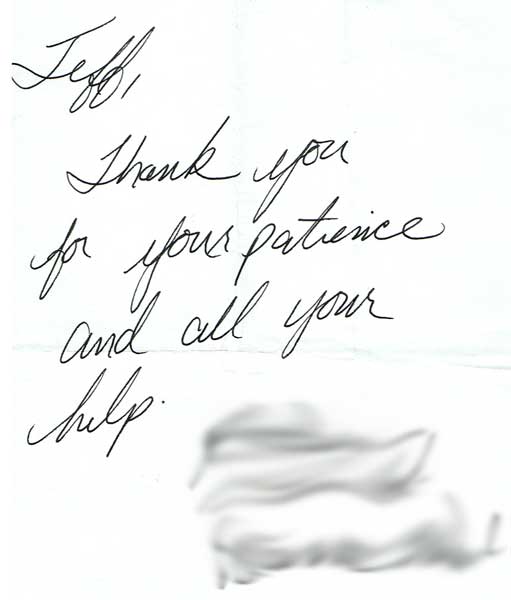 Jeff,
Thank you
for your patience
and all your
help.